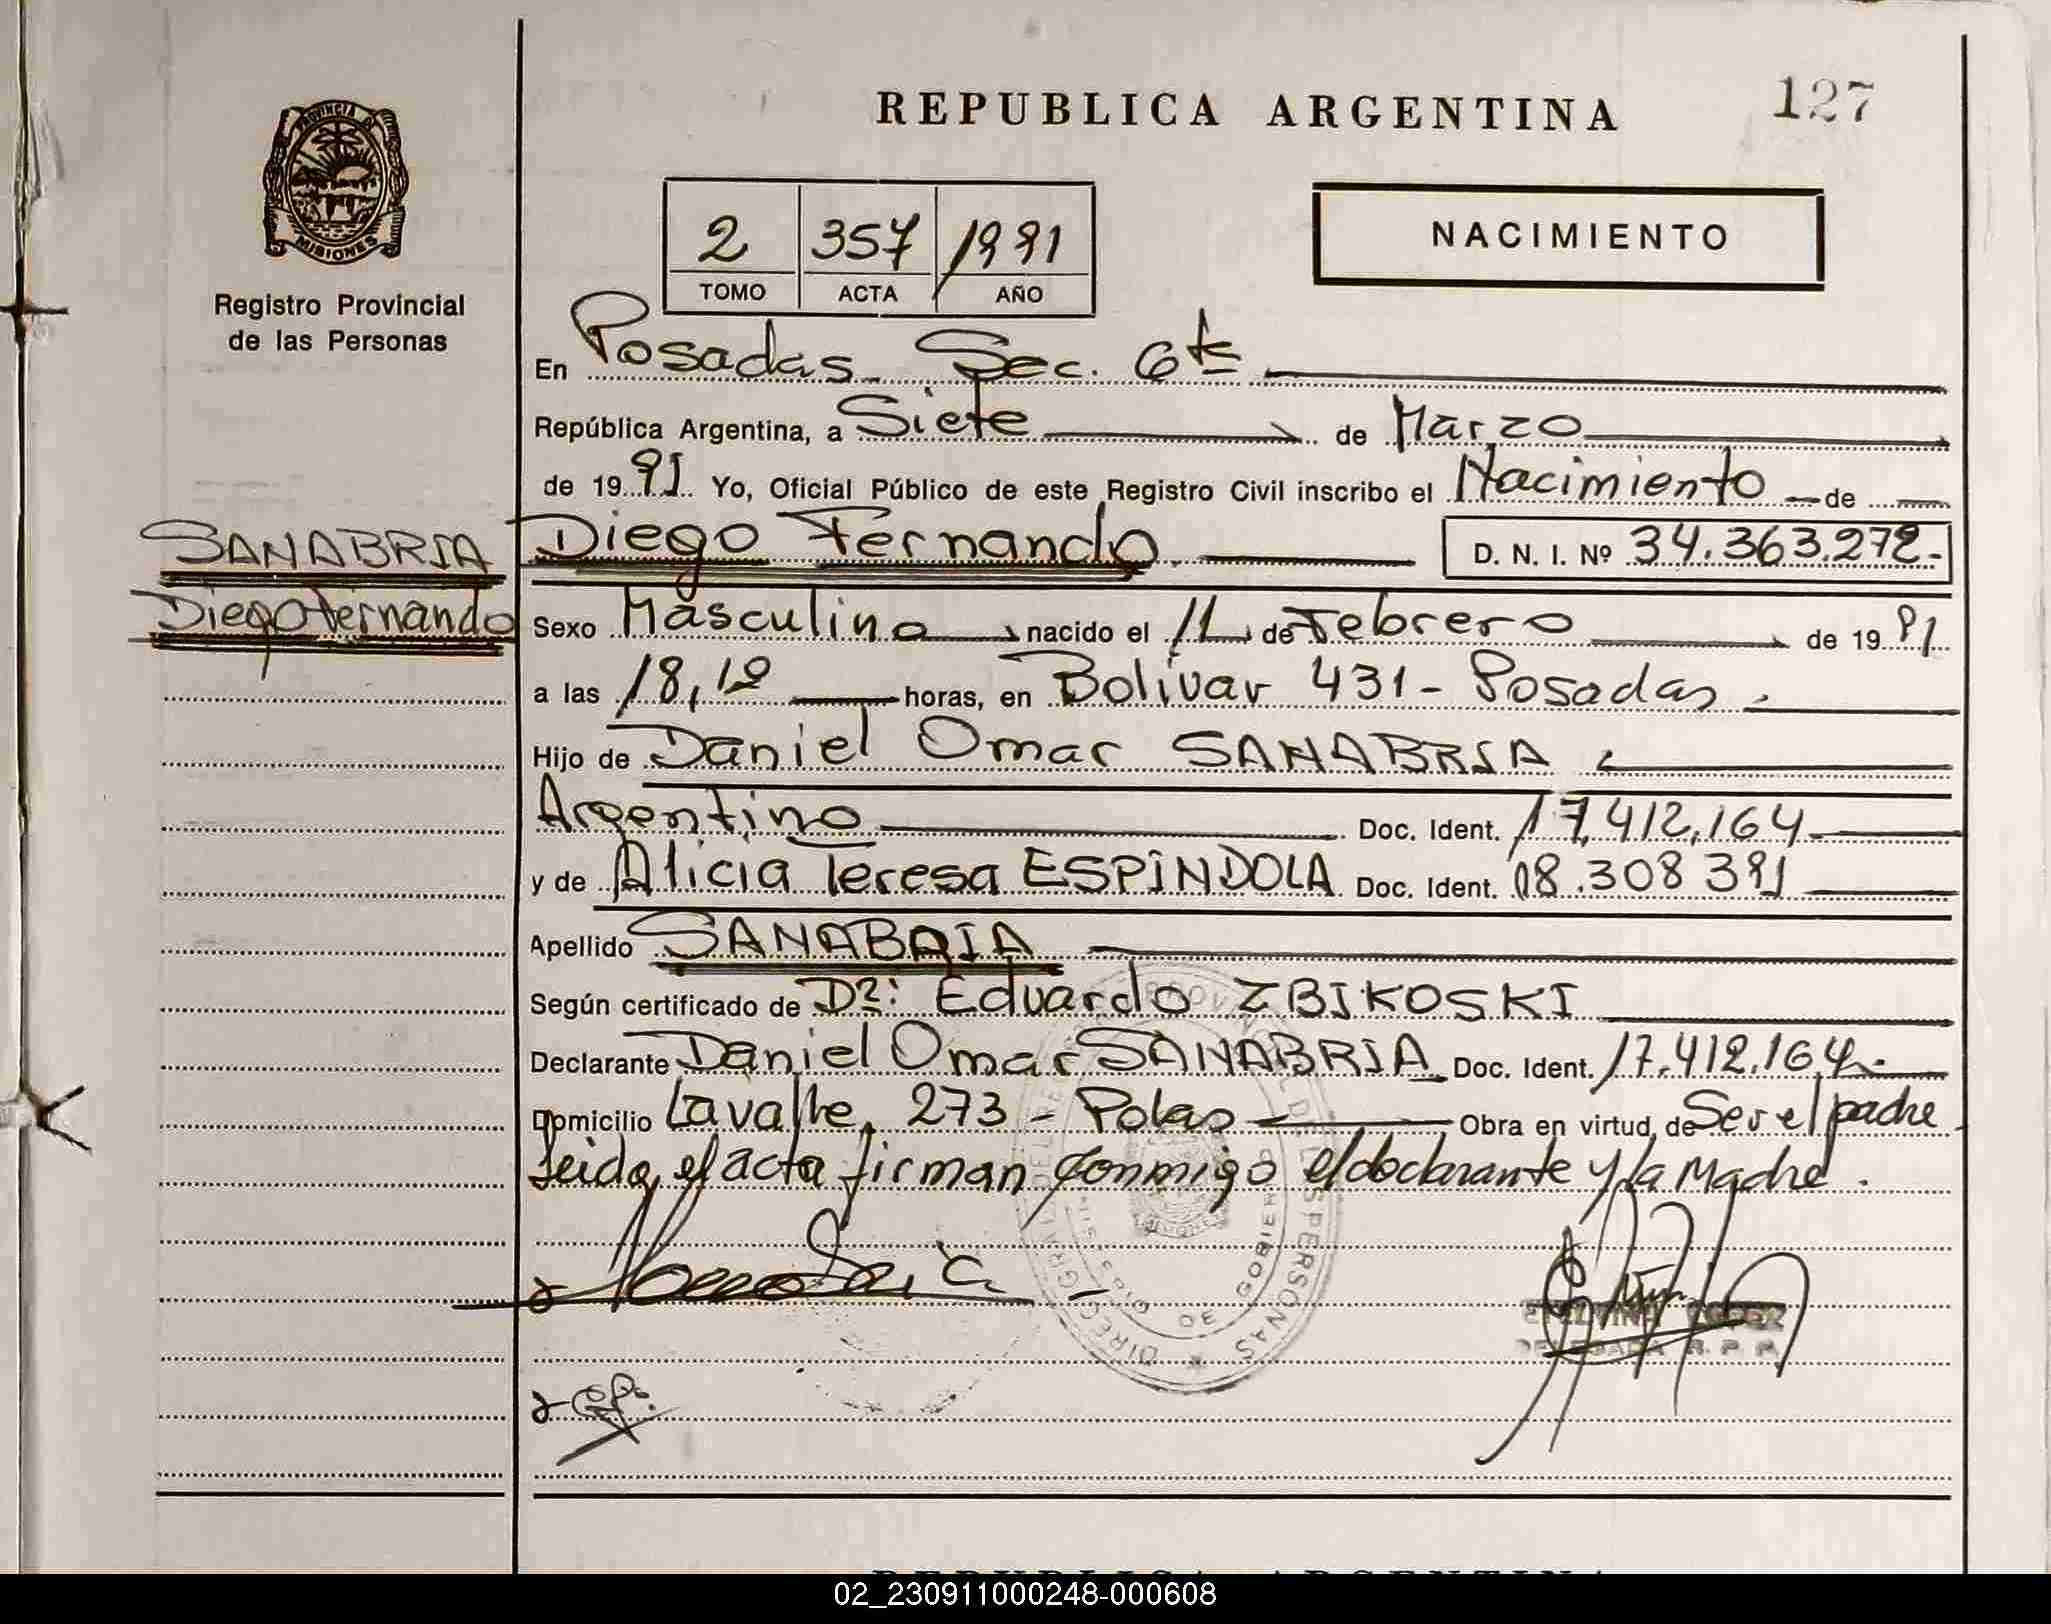 REPUBLICA ARGENTINA
127
PROVINCIA DE
MISIONES
Registro Provincial
de las Personas
2 357 1991
TOMO ACTA AÑO
NACIMIENTO
En Posadas Sec. 6ta
República Argentina, a Siete de Marzo
de 1991 Yo, Oficial Público de este Registro Civil inscribo el Nacimiento de
SANABRIA
Diego Fernando
Diego Fernando D. N. I. Nº 34.363.272.-
Sexo Masculino nacido el 11 de Febrero de 1991
a las 18,10 horas, en Bolívar 431 - Posadas.
Hijo de Daniel Omar SANABRIA
Argentino Doc. Ident. 17,412,164
y de Alicia Teresa ESPINDOLA Doc. Ident. 18.308 391
Apellido SANABRIA
Según certificado de Dr: Eduardo ZBIKOSKI
Declarante Daniel Omar SANABRIA Doc. Ident. 17.412.164.
Domicilio Lavalle 273 - Pdas Obra en virtud de Ser el padre
Leida el acta firman conmigo el declarante y la Madre.
DE LAS PERSONAS
DE GOBIERNO
LOPEZ
DELEGADA R. P. P.
REPUBLICA ARGENTINA
02_230911000248-000608